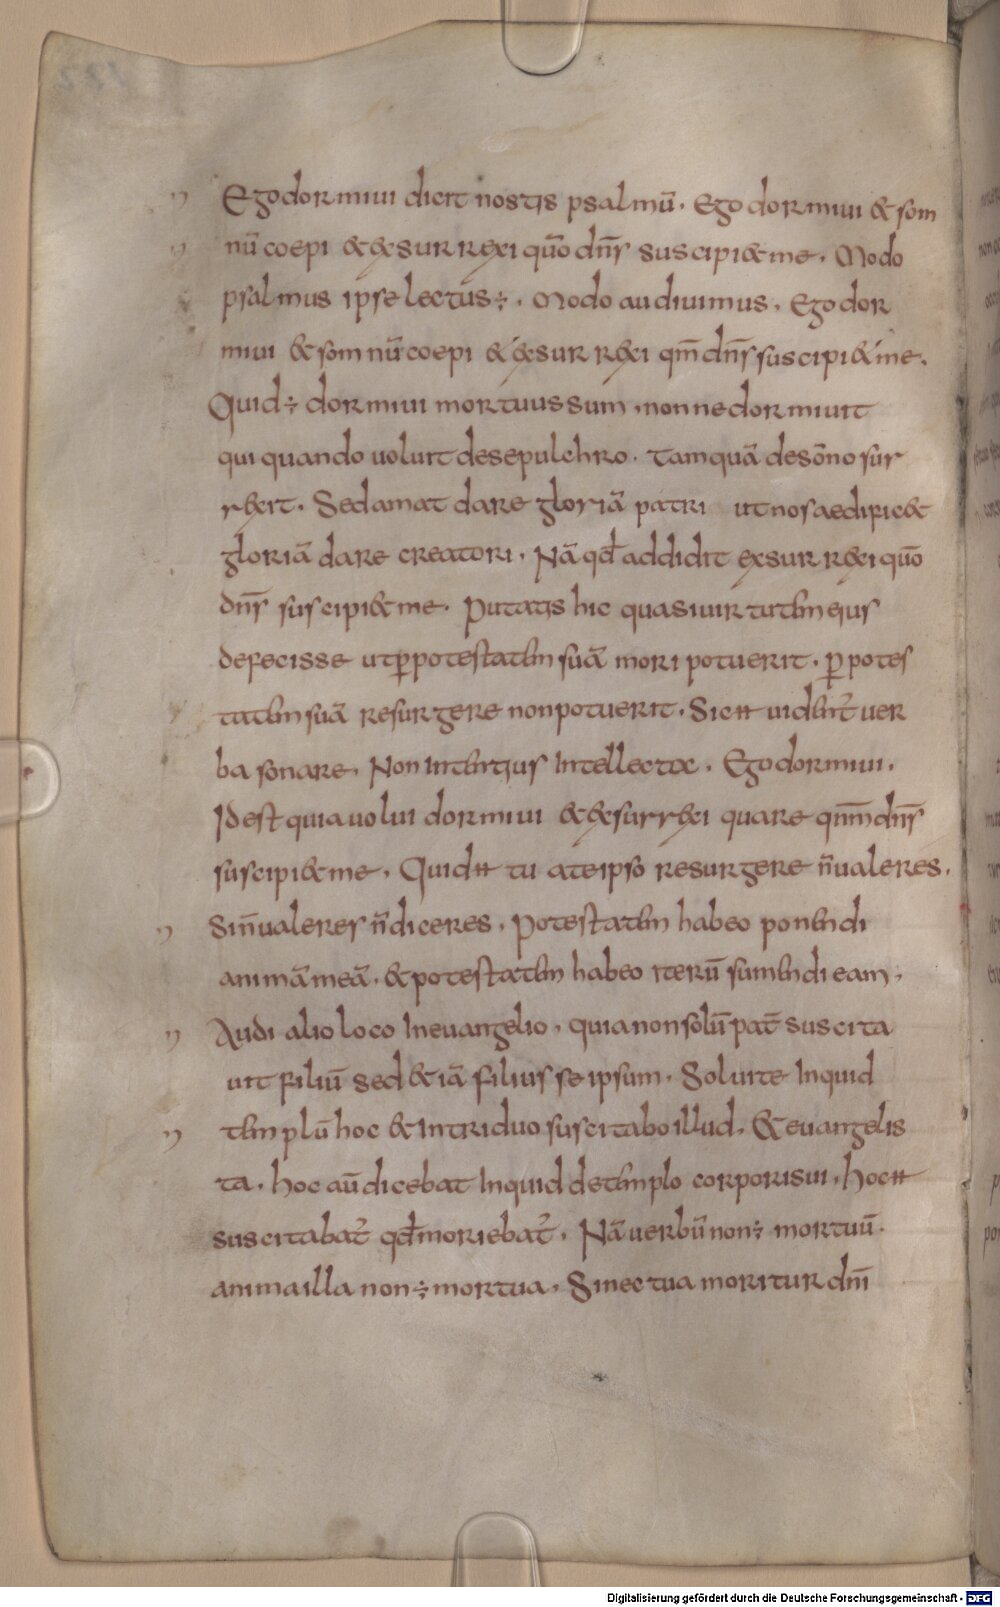 Ego dormiui dicit nostis psalmū. Ego dormiui & som
nū coepi & exsurrexi quō dn̄s suscipi& me. Modo
psalmus ipse lectus ÷. Modo audiuimus. Ego dor
miui & som nū coepi & exsurrexi qm̄ dn̄s suscipi& me.
Quid ÷ dormiui mortuus sum. nonne dormiuit
qui quando uoluit de sepulchro. tamquā de sōno sur
rexit. Sed amat dare gloriā patri ut nos aedific&
gloriā dare creatori. Nā qd̄ addidit exsurrexi quō
dn̄s suscipi& me. Putatis hic quasi uirtutem eius
defecisse ut ꝑ potestatem suā mori potuerit. ꝑ potes
tatem suā resurgere non potuerit. Sic ħ uidentr̄ uer
ba sonare. Non intentius intellecta. Ego dormiui.
Id est quia uolui dormiui & exsurrexi quare qnm̄ dn̄s
suscipi& me. Quid ħ tu a te ipso resurgere n̄ ualeres.
Si n̄ ualeres n̄ diceres. Potestatem habeo ponendi
animā meā. & potestatem habeo iterū sumendi eam.
Audi alio loco in euangelio. quia non solū pat̄ suscita
uit filiū sed &iā filius se ipsum. Soluite inquid
templū hoc & in triduo suscitabo illud. & euangelis
ta. hoc aū dicebat inquid de templo corporis sui. hoc ħ
suscitabat̄ qd̄ moriebat̄. Nā uerbū non ÷ mortuū.
anima illa non ÷ mortua. Si nec tua moritur dn̄i
Digitalisierung gefördert durch die Deutsche Forschungsgemeinschaft - DFG